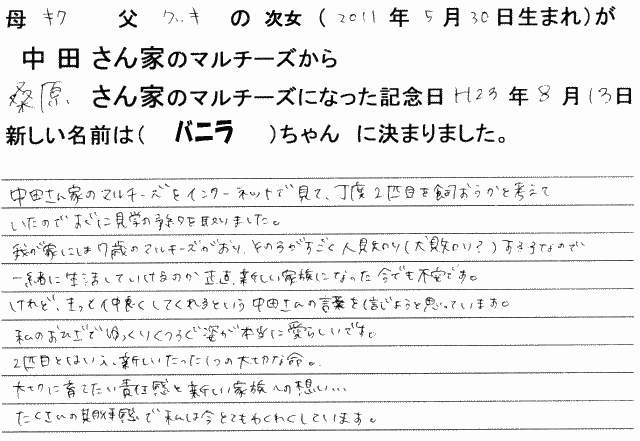 母 キク 父 クッキ の 次女 ( 2011 年 5 月 30 日生まれ)が
中 田 さん家のマルチーズから
桑原 さん家のマルチーズになった記念日 H23 年 8 月 13 日
新しい名前は( バニラ )ちゃん に決まりました。
中田さん家のマルチーズをインターネットで見て、丁度2匹目を飼おうかと考えて
いたのですぐに見学の予約を取りました。
我が家には7歳のマルチーズがおり、その子がすごく人見知り(犬見知り?)する子なので
一緒に生活していけるのか正直、新しい家族になった今でも不安です。
けれど、きっと仲良くしてくれるという中田さんの言葉を信じようと思っています。
私のおひざでゆっくりくつろぐ姿が本当に愛らしいです。
2匹目とはいえ、新しいたった1つの大切な命。
大切に育てたい責任感と新しい家族への想い...
たくさんの期待感で私は今とてもわくわくしています。